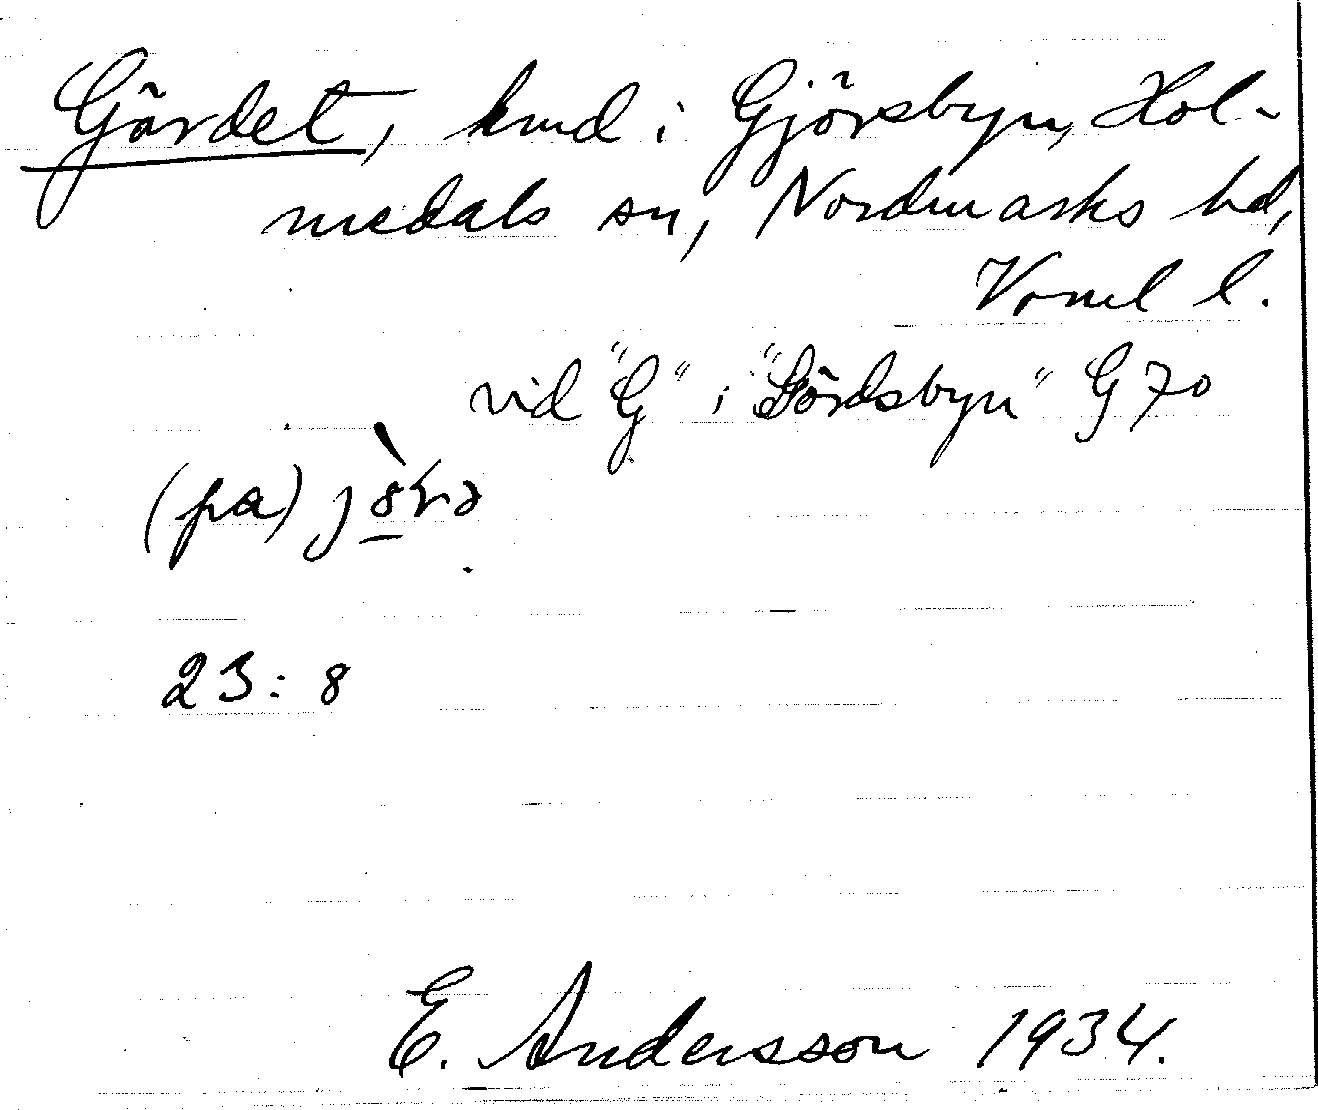 Gärdet, hmd i Gjörsbyn, Hol-
medals sn, Nordmarks hd,
Vrml l.
vid "G" i "Gördsbyn" G 70
(pa)
23:8
E. Andersson 1934.